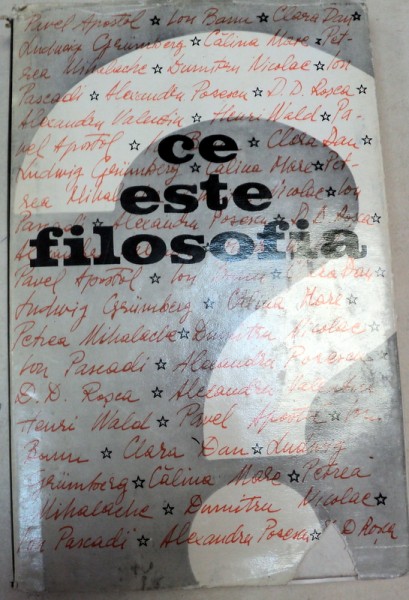 Pavel Apostol ☆ Ion Banu ☆ Clara Dan ☆
Ludwig Grünberg ☆ Călina Mare ☆ Pet-
rea Mihalache ☆ Dumitru Nicolae ☆ Ion
Pascadi ☆ Alexandru Posescu ☆ D. D. Roșca ☆
Alexandru Valentin ☆ Henri Wald ☆ Pa-
vel Apostol ☆ Clara Dan ☆
ce
Ludwig Grünberg ☆ Călina Mare ☆ Pet-
rea ☆ Ion
este
Pascadi ☆ Alexandru Posescu ☆ D. D. Roșca
filosofia
Pavel Apostol ☆ Ion Dan ☆
Ludwig Grünberg ☆ Călina Mare ☆
Petrea Mihalache ☆ Dumitru Nicolae ☆
Ion Pascadi ☆ Alexandru Posescu ☆
D. D. Roșca ☆ Alexandru Valentin ☆
Henri Wald ☆ Pavel Apostol ☆ Ion
Banu ☆ Clara Dan ☆ Ludwig
Grünberg ☆ Călina Mare ☆ Petrea
Mihalache ☆ Dumitru Nicolae ☆
Ion Pascadi ☆ Alexandru Posescu ☆ D Roșca